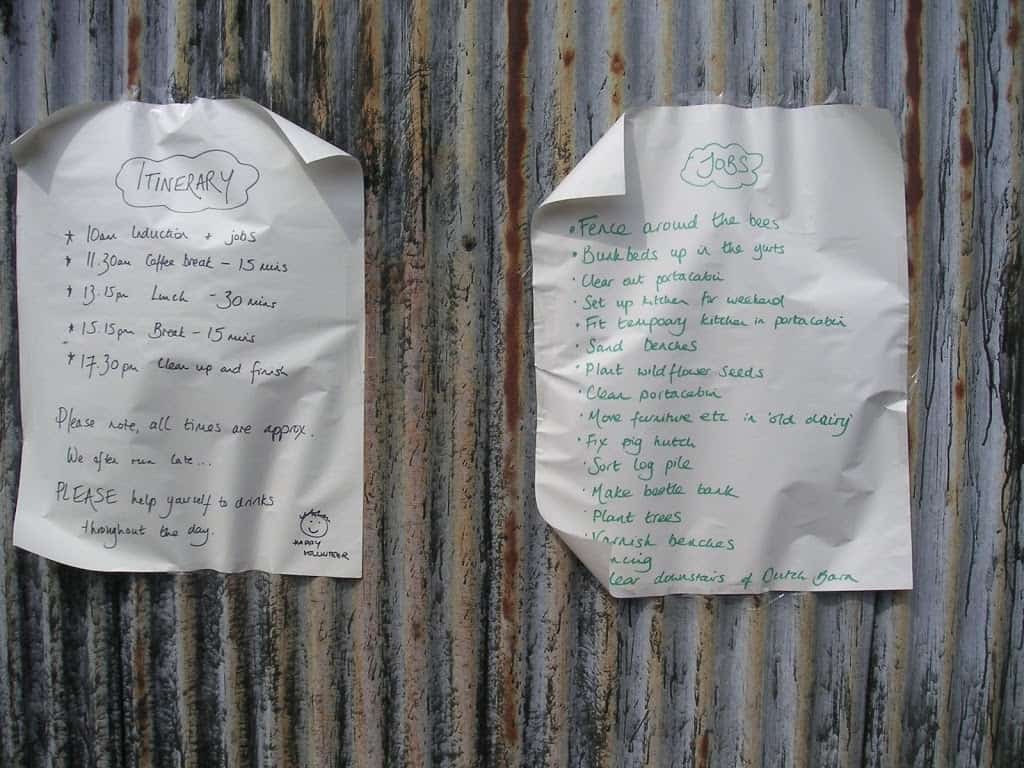 ITINERARY
* 10am Induction + jobs
* 11.30am Coffee break - 15 mins
* 13.15pm Lunch - 30 mins
* 15.15pm Break - 15 mins
* 17.30pm Clean up and finish
Please note, all times are approx.
We often run late...
PLEASE help yourself to drinks
throughout the day.
HAPPY
VOLUNTEER
JOBS
• Fence around the bees
• Bunkbeds up in the yurts
• Clear out portacabin
• Set up kitchen for weekend
• Fit tempoary kitchen in portacabin
• Sand benches
• Plant wildflower seeds
• Clean portacabin
• Move furniture etc in 'old dairy'
• Fix pig hutch
• Sort log pile
• Make beetle bank
• Plant trees
• Varnish benches
ncing
lear downstairs of Dutch Barn